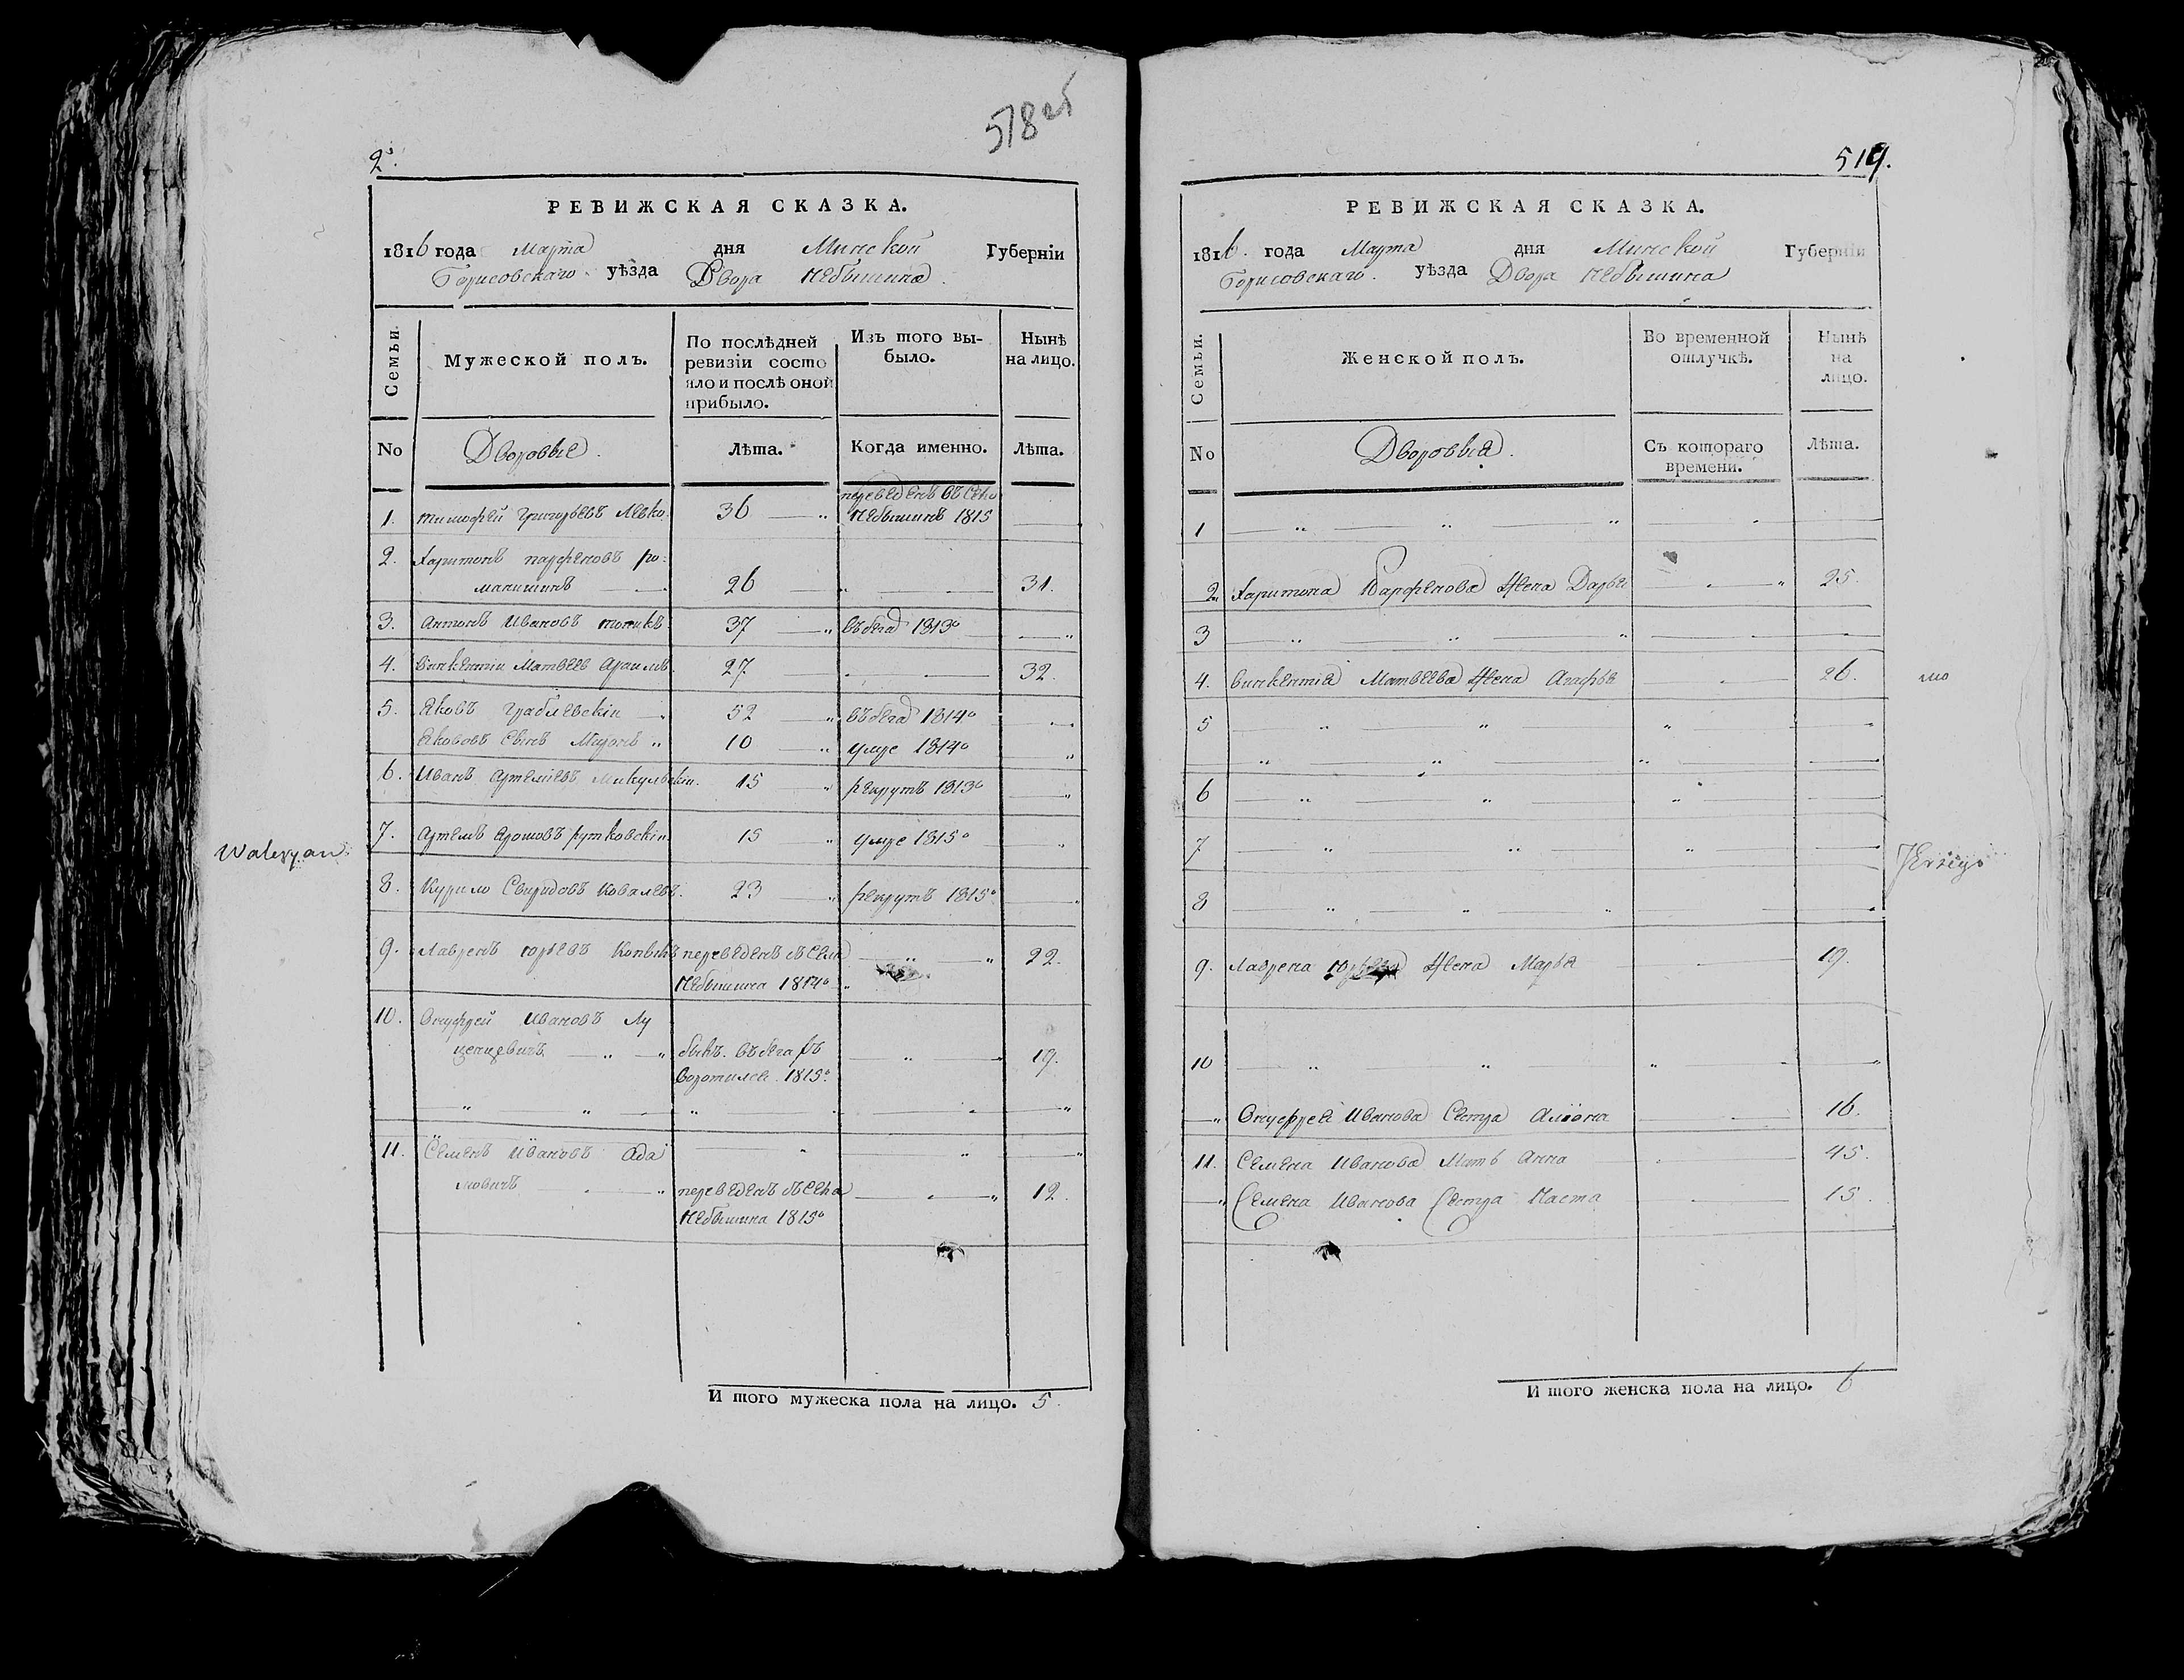 518об
2.
РЕВИЖСКАЯ СКАЗКА.
1816 года Марта дня Минской Губерніи
Борисовскаго уѣзда Двора Небышина.
Семьи.
Мужеской полъ.
По послѣдней ревизіи состояло и послѣ оной прибыло.
Изъ того выбыло.
Нынѣ на лицо.
No
Дворовые.
Лѣта.
Когда именно.
Лѣта.
1. Тимофей Григорьевъ Левко. 36 переведенъ въ село Небышинъ 1815
2. Харитонъ Парфеновъ Ро:
манишинъ 26 31.
3. Антонъ Ивановъ 37 въ бега 1813о
4. Викентіи Матвеев 27 32.
5. Яковъ Граблевскіи 52 въ бега 1814о
Яковов Сынъ Миронъ 10 умре 1814о
6. Иванъ Артеміевъ Микульскіи. 15 рекрутъ 1813о
7. Артемъ Ярошовъ Рутковскіи 15 умре 1815о
Waleryan
8. Курило Свиридовъ Ковалевъ. 23 рекрутъ 1815о
9. Лавренъ Юрьевъ переведенъ зъ села Небышина 1814о 22.
10. Онуфрей Ивановъ Лу
ценцевичъ былъ въ бегах воротилсе 1815о 19.
11. Семенъ Ивановъ Ада
мовичъ переведенъ зъ села Небышина 1815о 12.
И того мужеска пола на лицо. 5.
519.
РЕВИЖСКАЯ СКАЗКА.
1816. года Марта дня Минской Губерніи
Борисовскаго. уѣзда Двора Небышина
Семьи.
Женской полъ.
Во временной отлучкѣ.
Нынѣ на лицо.
No
Дворовыя.
Съ котораго времени.
Лѣта.
1
2. Харитона Парфенова Жена Дарья 25.
3
4. Викентія Матвеева Жена Агафья 26.
5
6
7
8
9. Лаврена Юрьева Жена Марья 19.
10
Онуфрея Иванова Сестра Аліона 16.
11. Семена Иванова Мать Анна 45.
Семена Иванова Сестра Наста 15.
И того женска пола на лицо. 6